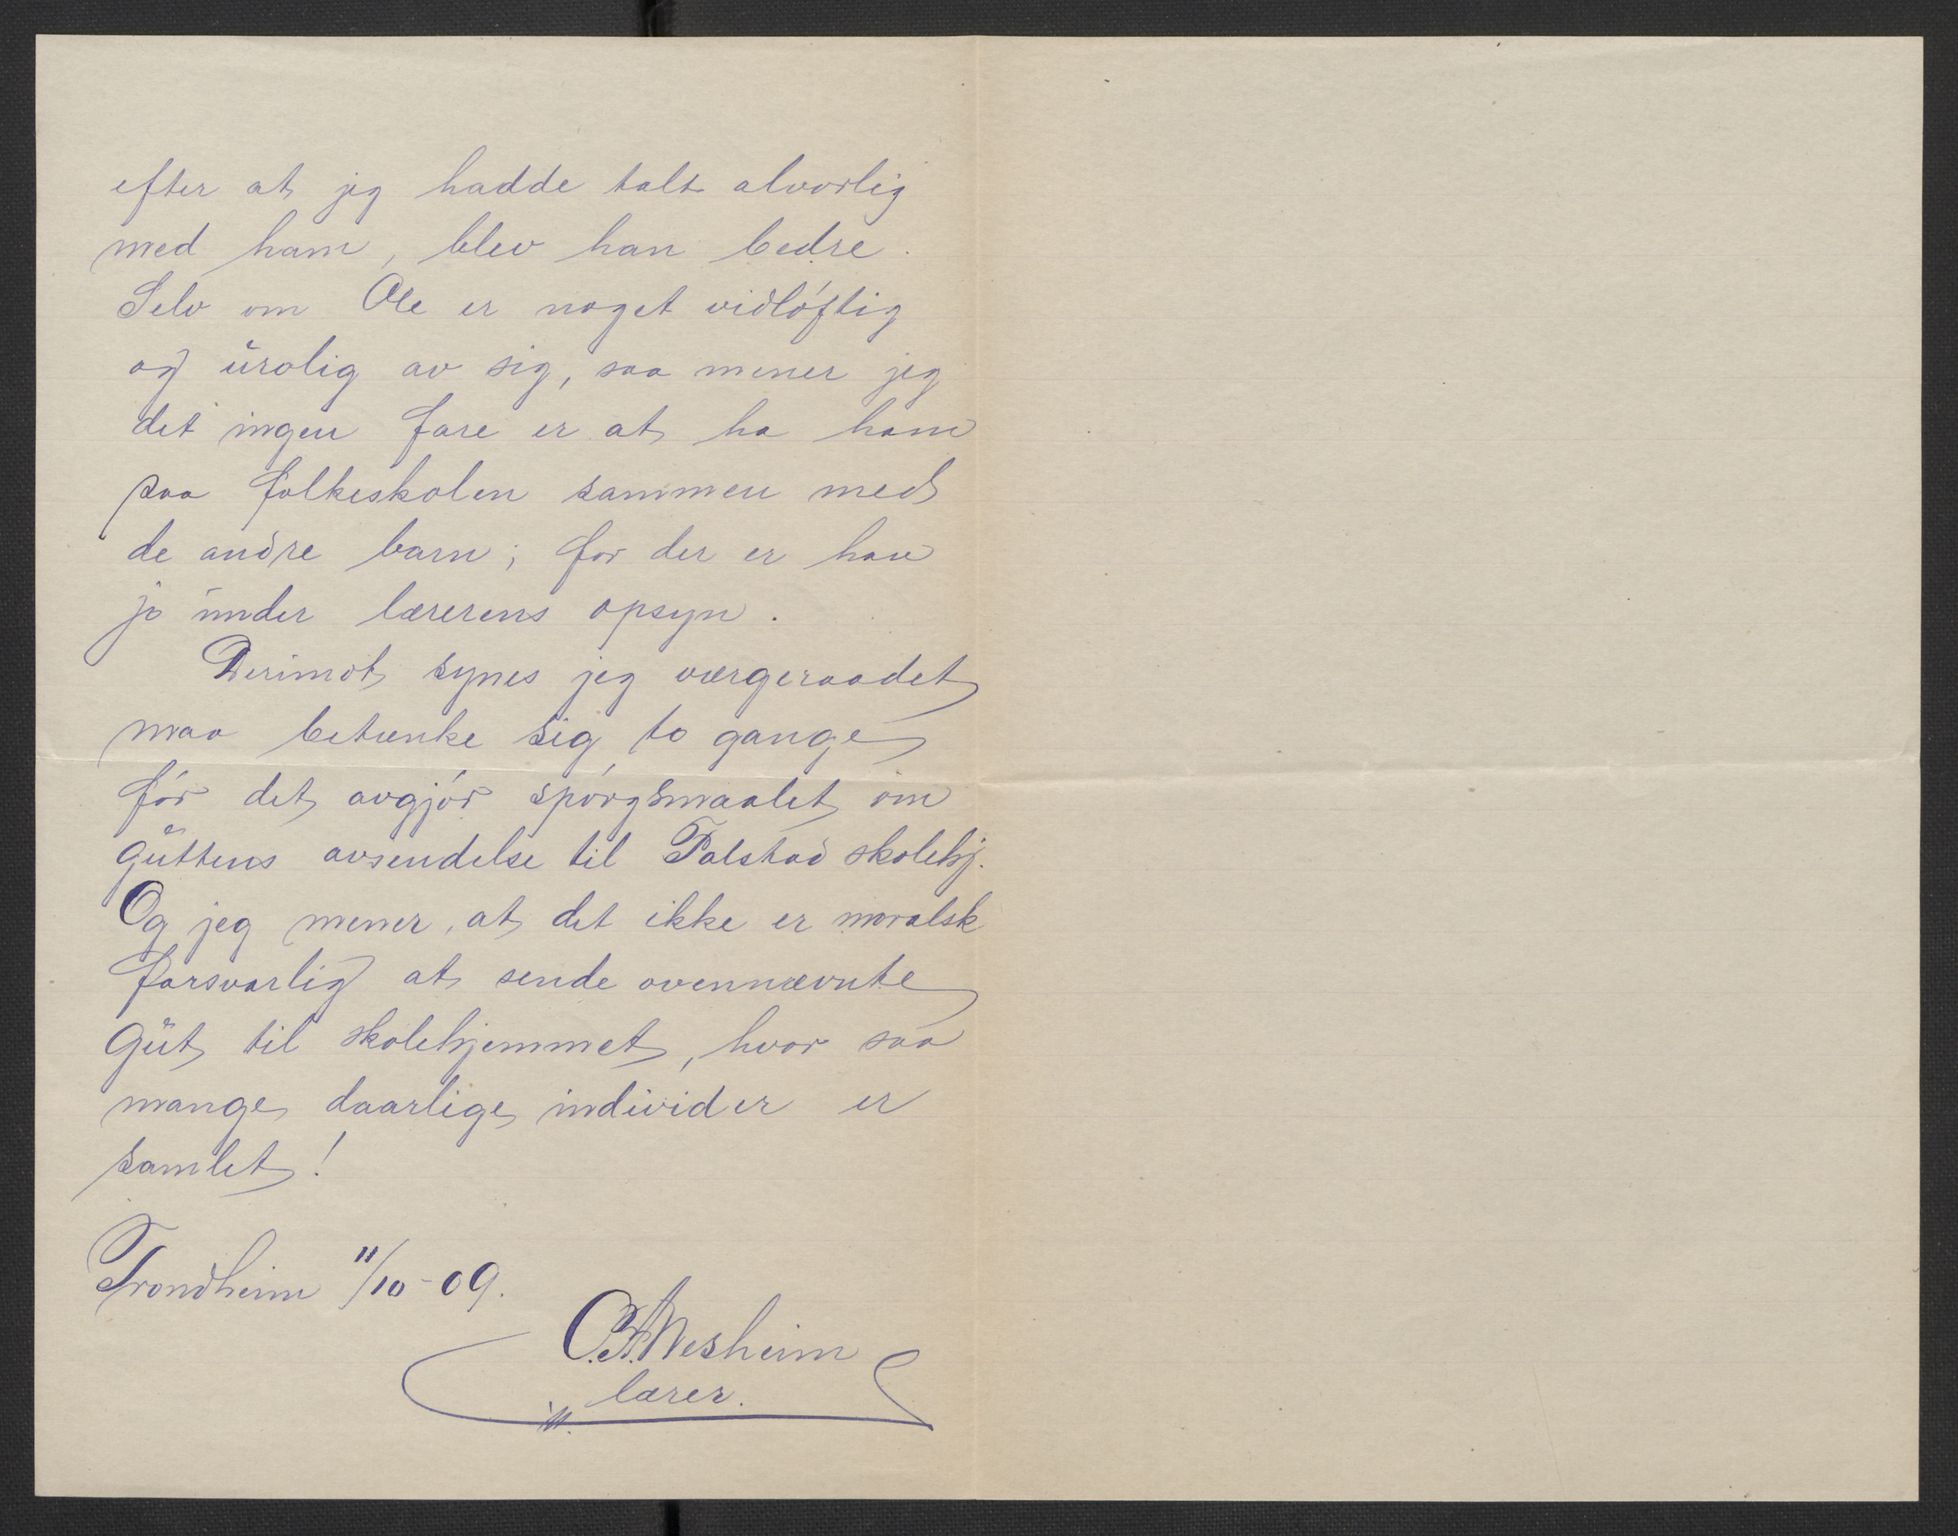 efter at jeg hadde talt alvorlig
med ham, blev han bedre.
Selv om Ole er noget vidløftig
og urolig av sig, saa mener jeg
det ingen fare er at ha ham
paa folkeskolen sammen med
de andre barn; for der er han
jo under lærerens opsyn.
Derimot synes jeg værgeraadet
maa betænke sig to gange
før det avgjør spørgsmaalet om
guttens avsendelse til Falstad skolehj.
Og jeg mener, at det ikke er moralsk
forsvarlig at sende ovennævnte
gut til skolehjemmet, hvor saa
mange daarlige individer er
samlet!
Trondheim 11/10-09.
Wesheim
lærer.